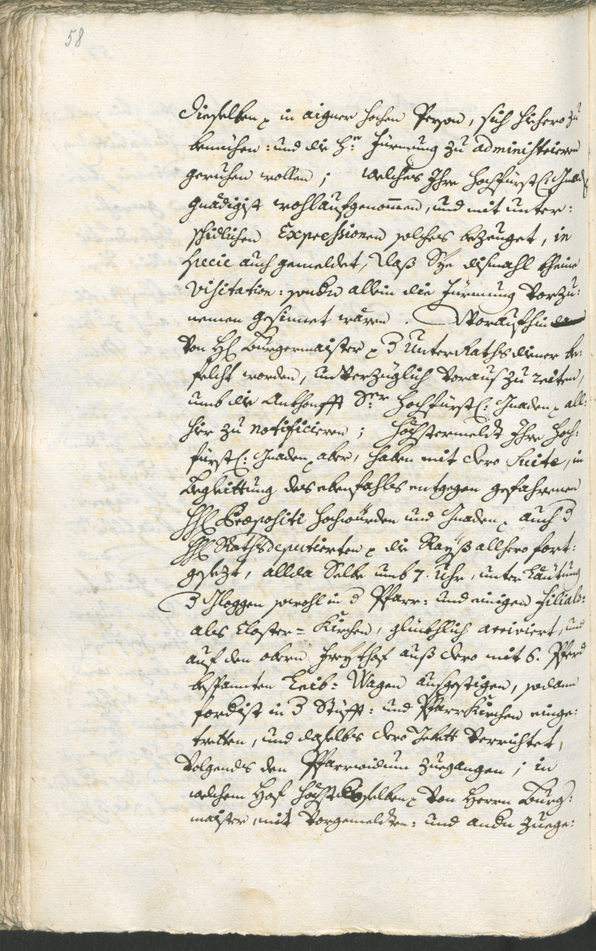 58
dieselben in aigner hochen Person, sich hiehero zu
bemüehen: und die h. Firmung zu administrieren
geruhen wollen; welches Ihre hochfürstl: Gnad
gnädigist wohlaufgenommen, und mit unter:
schidlichen Expressionen solches bezeuget, in
specie auch gemeldet, daß Sye dismahl kheine
Visitation: sondern allein die Firmung vorzu:
nemen gesinnet wären Woraufhin
von H: Burgermaister 3 Unter Rathsdiener be:
felcht worden, unverzüglich vorauß zu reiten,
umb die Ankhonfft Sr hochfürstl: Gnaden all:
hier zu notificieren; höchstermeldt Ihre hoch:
fürstl: Gnaden aber, haben mit dero Suite, in
Beglaittung des ebenfahls entgegen gefahrenen
H: Praepositi hochwürden und Gnaden, auch d
H: Rathsdeputierten die Rayß allhero fort:
gesezt, allda Selbe umb 7. Uhr, unter Läutung
d Gloggen sowohl in d Pfarr: und einigen Filial:
als Closter= Kirchen, glückhlich arriviert, und
auf den obern Freythof auß dero mit 6. Pferd
bespannten Leib: Wagen ausgestigen, sodann
fordist in d Stüfft: und Pfarr Kirchen einge:
tretten, und daselbs dero Gebett verrichtet,
volgends den Pfarrwidum zuegangen; in
welchem Hof höchstdieselben von Herrn Burg:
maister, mit vorgemelten: und andn zuege: